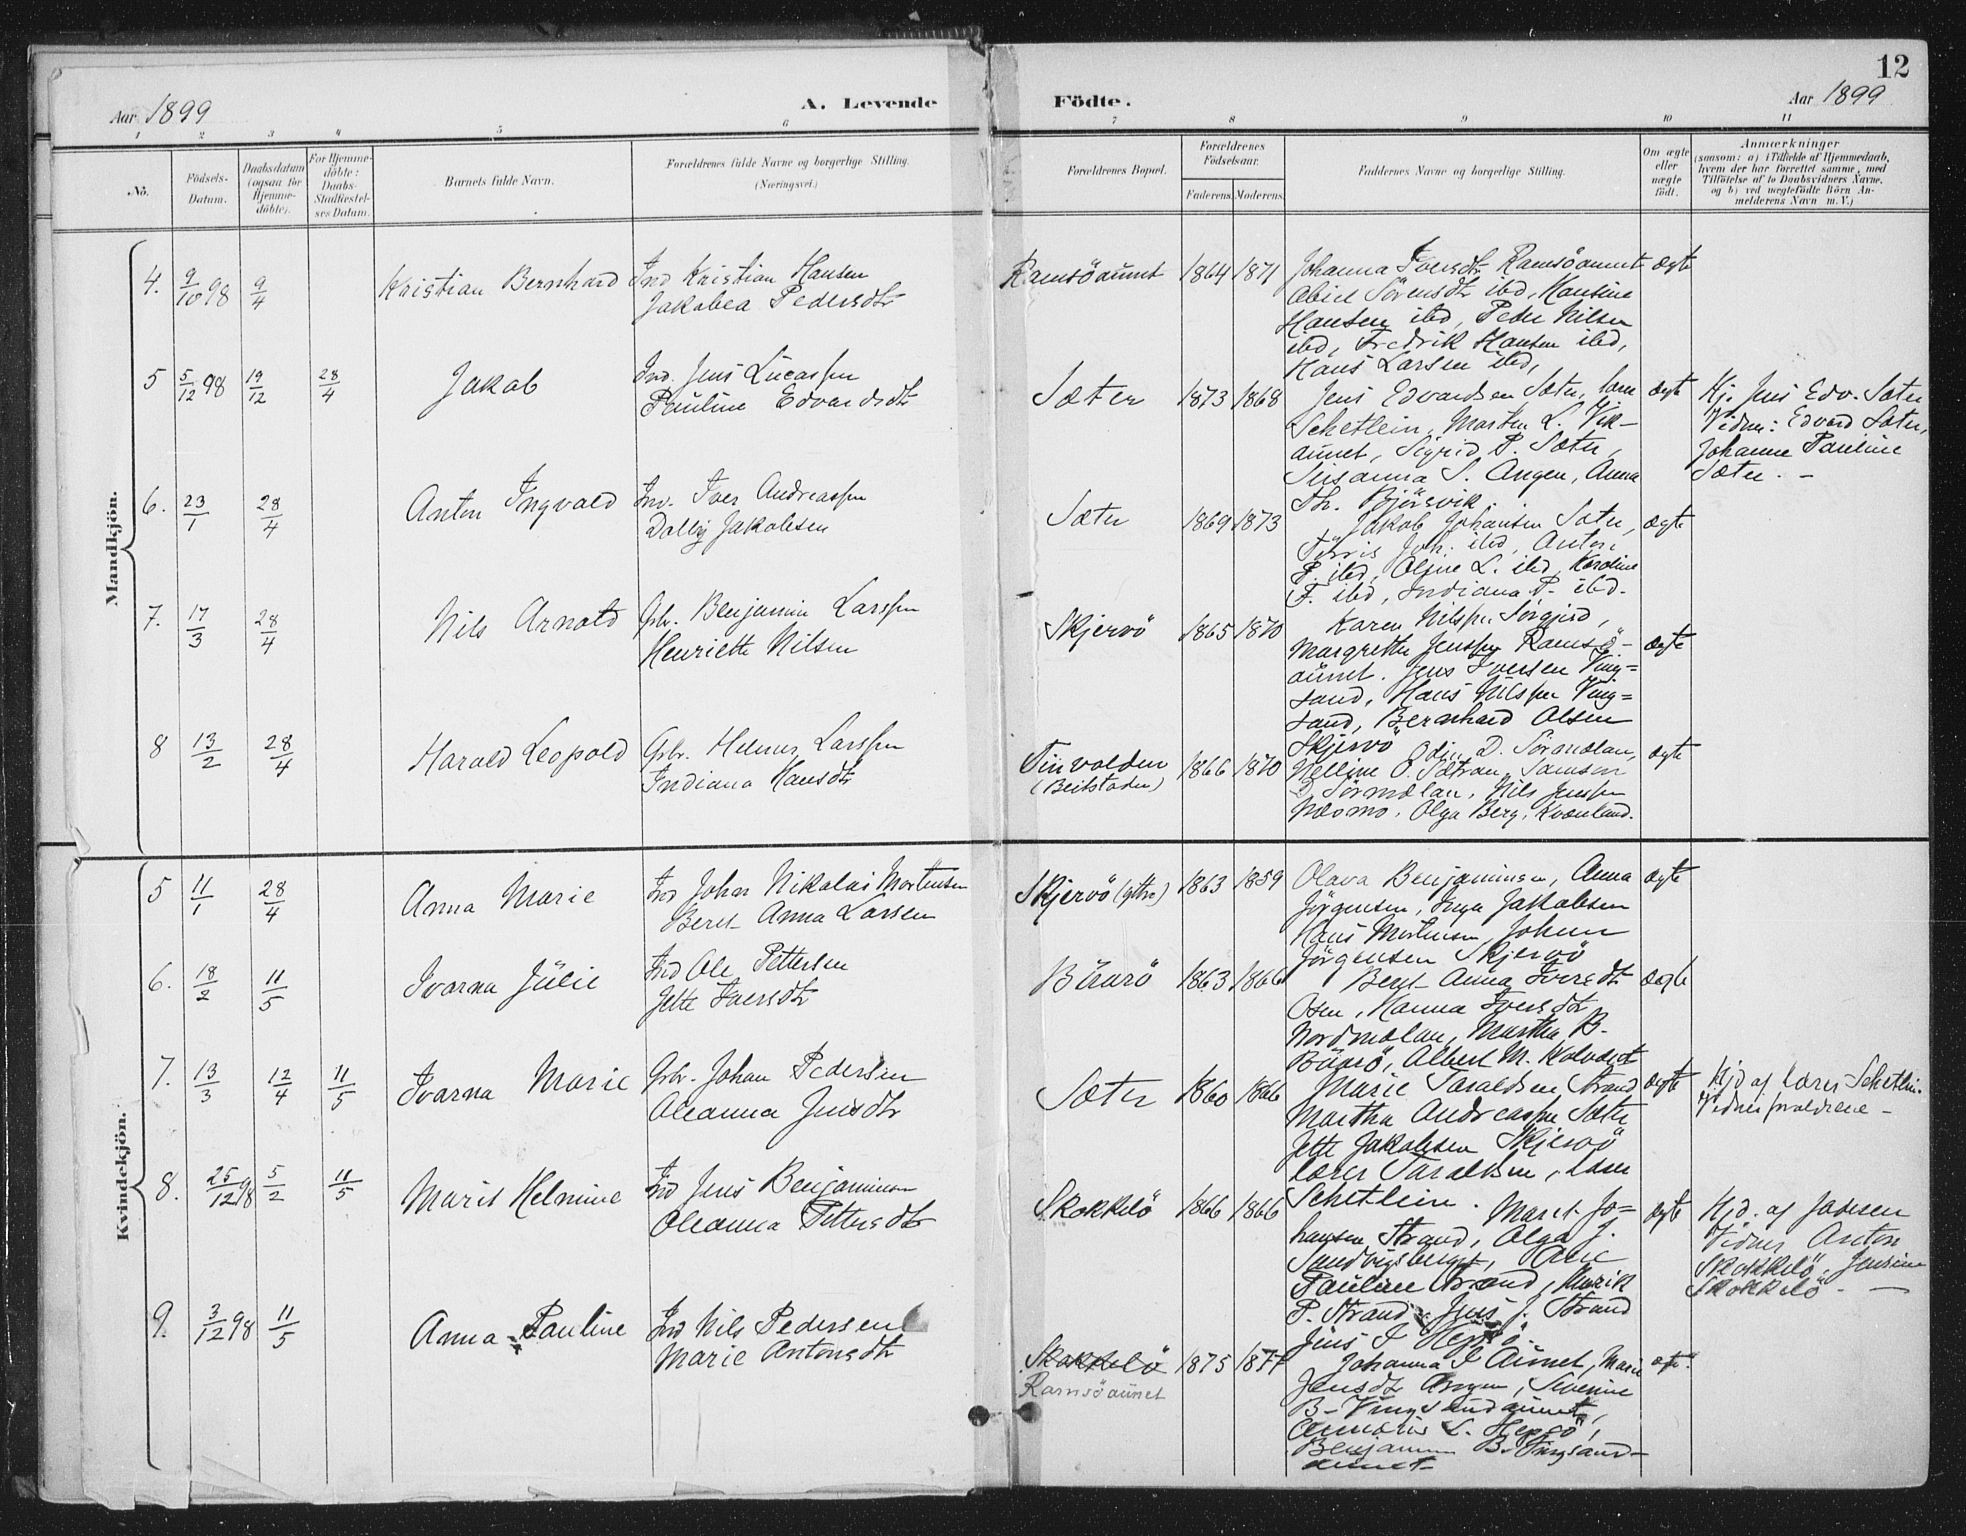 12
Aar 1899
A. Levende
Födte.
Aar 1899
1 2 3 4 5 6 7 8 9 10 11
No.
Födsels-Datum.
Daabsdatum (ogsaa for Hjemmedöbte).
For Hjemmedöbte: Daabs-Stadfæstelses Datum.
Barnets fulde Navn.
Forældrenes fulde Navne og borgerlige Stilling.
(Næringsvei.)
Forældrenes Bopæl.
Forældrenes Födselsaar.
Faderens. Moderens.
Faddernes Navne og borgerlige Stilling.
Om ægte eller uægte födt.
Anmærkninger
(saasom: a) i Tilfælde af Hjemmedaab,
hvem der har forrettet samme, med
Tilföielse af to Daabsvidners Navne,
og b) ved uægtefödte Börn Anmelderens Navn m. V.)
Mandkjön.
4. 9/10 98 9/4 Kristian Bernhard
Ind Kristian Hansen
Jakobea Pedersdtr
Ramsöaunet 1864 1871
Johanna Iversdtr Ramsöaunet
Sörensdtr ibd, Hansine
Hansen ibd, Peder Nilsen
ibd, Fredrik Hansen ibd,
Hans Larsen ibd,
ægte
5 5/12 98 19/12 28/4 Jakob
Ind. Jens Lucassen
Pauline Edvardsdtr
Sæter 1873 1868
Jens Edvardsen Sæter,
Schetlein, Morten L. Vik-
aunet, Sigrid P. Sæter,
Susanna S. Angen, Anna
Th. Björsvik.
ægte
Hj. Jens Edv. Sæter
Vidner: Edvard Sæter,
Johanne Pauline
Sæter. -
6. 23/1 28/4 Anton Ingvald
Ind. Iver Andreassen
Jakobsen
Sæter 1869 1873
Jakob Johansen Sæter,
Joh. ibd, Anton
P. ibd, Oline L. ibd, Karoline
F. ibd, Indiana P. ibd.
ægte
7. 17/3 28/4 Nils Arnold
Gbr. Benjamin Larssen
Henriette Nilsen
Skjervö 1865 1870
Karen Nilssen Sörgjerd,
Margrethe Jenssen Ramsö-
aunet. Jens Iversen Ving-
sand, Hans Nilssen Ving-
sand, Bernhard Olsen
Skjervö
ægte
8 13/2 28/4 Harald Leopold
Gbr. Helmer Larssen
Indiana Hansdtr
Tinvolden
(Beitstaden)
1866 1870
Odin D. Sörmælan,
Nelline O. Sætran, Samson
D. Sörmælan, Nils Jenssen
Næsmo. Olga Berg, Kvænland.
ægte
Kvindekjön.
5 11/1 28/4 Anna Marie
Ind Johan Nikolai Mortensen
Beret Anna Larsen
Skjervö (yttre) 1863 1859
Olava Benjaminsen, Anna
Jörgensen, Inga Jakobsen
Hans Mortensen, Johan
Jörgensen Skjervö
ægte
6. 18/2 11/5 Ivarna Julie
Ind Ole Pettersen
Jette Iversdtr
Buarö 1863 1866
Beret Anna Iversdtr
Osen, Hanna Iversdtr
Nordmælan, Martha B.
Buarö, Albert M.
ægte
7. 13/3 12/4 11/5 Ivarna Marie
Gbr. Johan Pedersen
Oleanna Jensdtr
Sæter 1860 1866
Marie Taraldsen Strand
Martha Andreassen Sæter
Jette Jakobsen Skjervö
lærer Taraldsen, lærer
Schetlein.
ægte
Hjd af lærer Schetlein.
Vidner forældrene -
8. 25/12 98 5/2 11/5 Marit Helmine
Ind Jens Benjaminsen
Oleanna Pettersdtr
Skokkelö 1866 1866
Maret Jo-
hansen Strand, Olga J.
Sandvigsberget,
Pauline Strand,
P. Strand, Jens J. Strand
Jens I Hepsö.
ægte
Hjd. af
Vidner Anton
Skokkelö. Jensine
Skokkelö. -
9. 3/12 98 11/5 Anna Pauline
Ind Nils Pedersen
Marie Antonsdtr
Skokkelö
Ramsöaunet
1875 1877
Johanna I Aunet, Marie
Jensdtr Angen, Severine
B- Vingsandaunet,
L. Hepsö,
Benjamin B. Vingsand-
aunet-
ægte